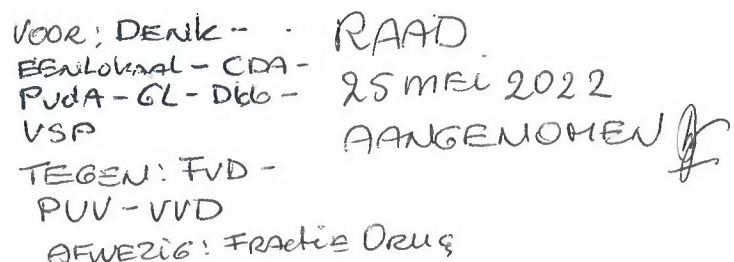 VOOR: DENK -
EENLOKAAL - CDA -
PvdA - GL - D66 -
VSP
TEGEN: FVD -
PVV - VVD
AFWEZIG: FRActiE ORUÇ
RAAD
25 MEi 2022
AANGENOMEN